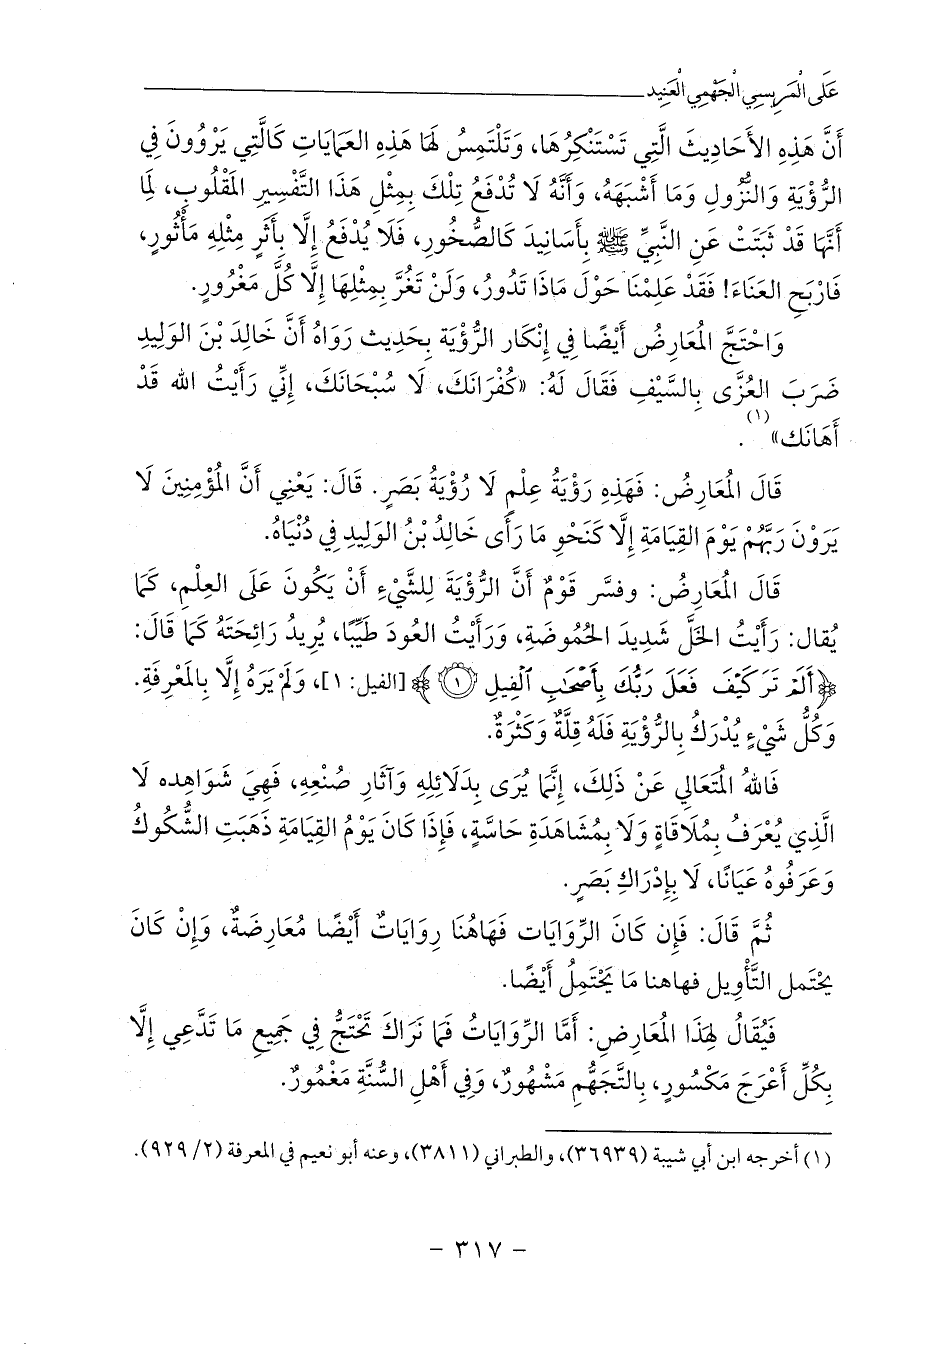 عَلَى الْمَرِيسِي الْجَهْمِي الْعَنِيدِ
أَنَّ هَذِهِ الأَحَادِيثَ الَّتِي تَسْتَنْكِرُهَا، وَتَلْتَمِسُ لَهَا هَذِهِ العَمَايَاتِ كَالَّتِي يَرْوُونَ فِي
الرُّؤْيَةِ وَالنُّزُولِ وَمَا أَشْبَهَهُ، وَأَنَّهُ لَا تُدْفَعُ تِلْكَ بِمِثْلِ هَذَا التَّفْسِيرِ المَقْلُوبِ، لِمَا
أَنَّهَا قَدْ ثَبَتَتْ عَنِ النَّبِيِّ ﷺ بِأَسَانِيدَ كَالصُّخُورِ، فَلَا يُدْفَعُ إِلَّا بِأَثَرٍ مِثْلِهِ مَأْثُورٍ،
فَارْبَحِ العَنَاءَ! فَقَدْ عَلِمْنَا حَوْلَ مَاذَا تَدُورُ، وَلَنْ تَغُرَّ بِمِثْلِهَا إِلَّا كُلَّ مَغْرُورٍ.
وَاحْتَجَّ المُعَارِضُ أَيْضًا فِي إِنْكَارِ الرُّؤْيَةِ بِحَدِيثٍ رَوَاهُ أَنَّ خَالِدَ بْنَ الوَلِيدِ
ضَرَبَ العُزَّى بِالسَّيْفِ فَقَالَ لَهُ: «كُفْرَانَكَ، لَا سُبْحَانَكَ، إِنِّي رَأَيْتُ الله قَدْ
أَهَانَك»(١).
قَالَ المُعَارِضُ: فَهَذِهِ رَؤْيَةُ عِلْمٍ لَا رُؤْيَةُ بَصَرٍ. قَالَ: يَعْنِي أَنَّ المُؤْمِنِينَ لَا
يَرَوْنَ رَبَّهُمْ يَوْمَ القِيَامَةِ إِلَّا كَنَحْوِ مَا رَأَى خَالِدُ بْنُ الوَلِيدِ فِي دُنْيَاهُ.
قَالَ المُعَارِضُ: وفسَّر قَوْمٌ أَنَّ الرُّؤْيَةَ لِلشَّيْءِ أَنْ يَكُونَ عَلَى العِلْمِ، كَمَا
يُقال: رَأَيْتُ الخَلَّ شَدِيدَ الحُمُوضَةِ، وَرَأَيْتُ العُودَ طَيِّبًا، يُرِيدُ رَائِحَتَهُ كَمَا قَالَ:
﴿أَلَمْ تَرَ كَيْفَ فَعَلَ رَبُّكَ بِأَصْحَٰبِ ٱلْفِيلِ ١﴾ [الفيل: ١]، وَلَمْ يَرَهُ إِلَّا بِالمَعْرِفَةِ.
وَكُلُّ شَيْءٍ يُدْرَكُ بِالرُّؤْيَةِ فَلَهُ قِلَّةٌ وَكَثْرَةٌ.
فَاللهُ المُتَعَالِي عَنْ ذَلِكَ، إِنَّمَا يُرَى بِدَلَائِلِهِ وَآثَارِ صُنْعِهِ، فَهِيَ شَوَاهِده لَا
الَّذِي يُعْرَفُ بِمُلَاقَاةٍ وَلَا بِمُشَاهَدَةِ حَاسَّةٍ، فَإِذَا كَانَ يَوْمُ القِيَامَةِ ذَهَبَتِ الشُّكُوكُ
وَعَرَفُوهُ عَيَانًا، لَا بِإِدْرَاكِ بَصَرٍ.
ثُمَّ قَالَ: فَإِن كَانَ الرِّوَايَات فَهَاهُنَا رِوَايَاتٌ أَيْضًا مُعَارِضَةٌ، وَإِنْ كَانَ
يحْتَمل التَّأْوِيل فهاهنا مَا يَحْتَمِلُ أَيْضًا.
فَيُقَالُ لِهَذَا المُعَارِضِ: أَمَّا الرِّوَايَاتُ فَمَا نَرَاكَ تَحْتَجُّ فِي جَمِيعِ مَا تَدَّعِي إِلَّا
بِكُلِّ أَعْرَجَ مَكْسُورٍ، بِالتَّجَهُّمِ مَشْهُورٌ، وَفِي أَهْلِ السُّنَّةِ مَغْمُورٌ.
(١) أخرجه ابن أبي شيبة (٣٦٩٣٩)، والطبراني (٣٨١١)، وعنه أبو نعيم في المعرفة (٢/ ٩٢٩).
- ٣١٧ -